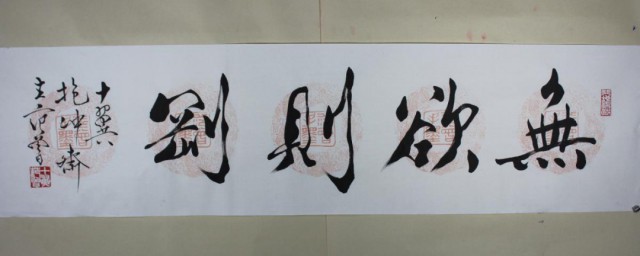 無欲則剛
十翼
抱冲齋
主范曾